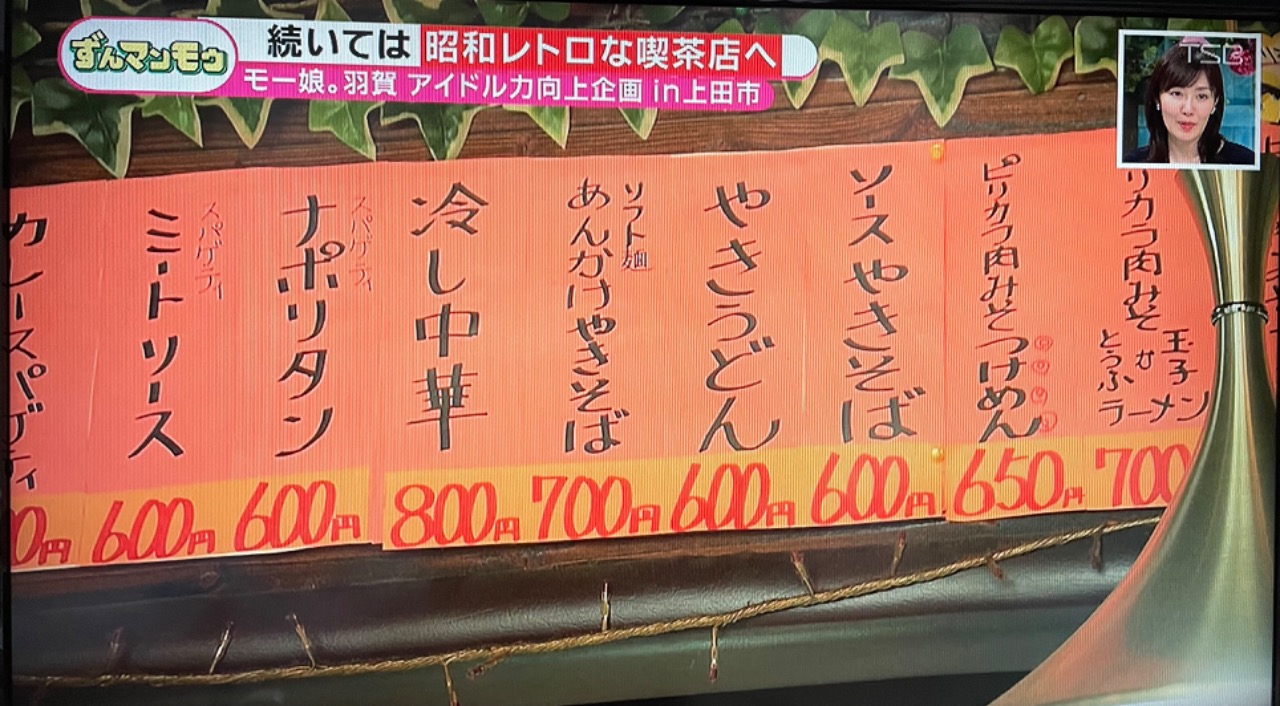 ずんマンモウ
続いては 昭和レトロな喫茶店へ
モー娘。羽賀 アイドル力向上企画 in上田市
TSB
リカラ肉みそ
玉子
か
とうふ
ラーメン
700
ピリカラ肉みそつけめん
650円
ソースやきそば
600円
やきうどん
600円
ソフト麺
あんかけやきそば
700円
冷し中華
800円
スパゲティ
ナポリタン
600円
スパゲティ
ミートソース
600円
カレースパゲティ
0円